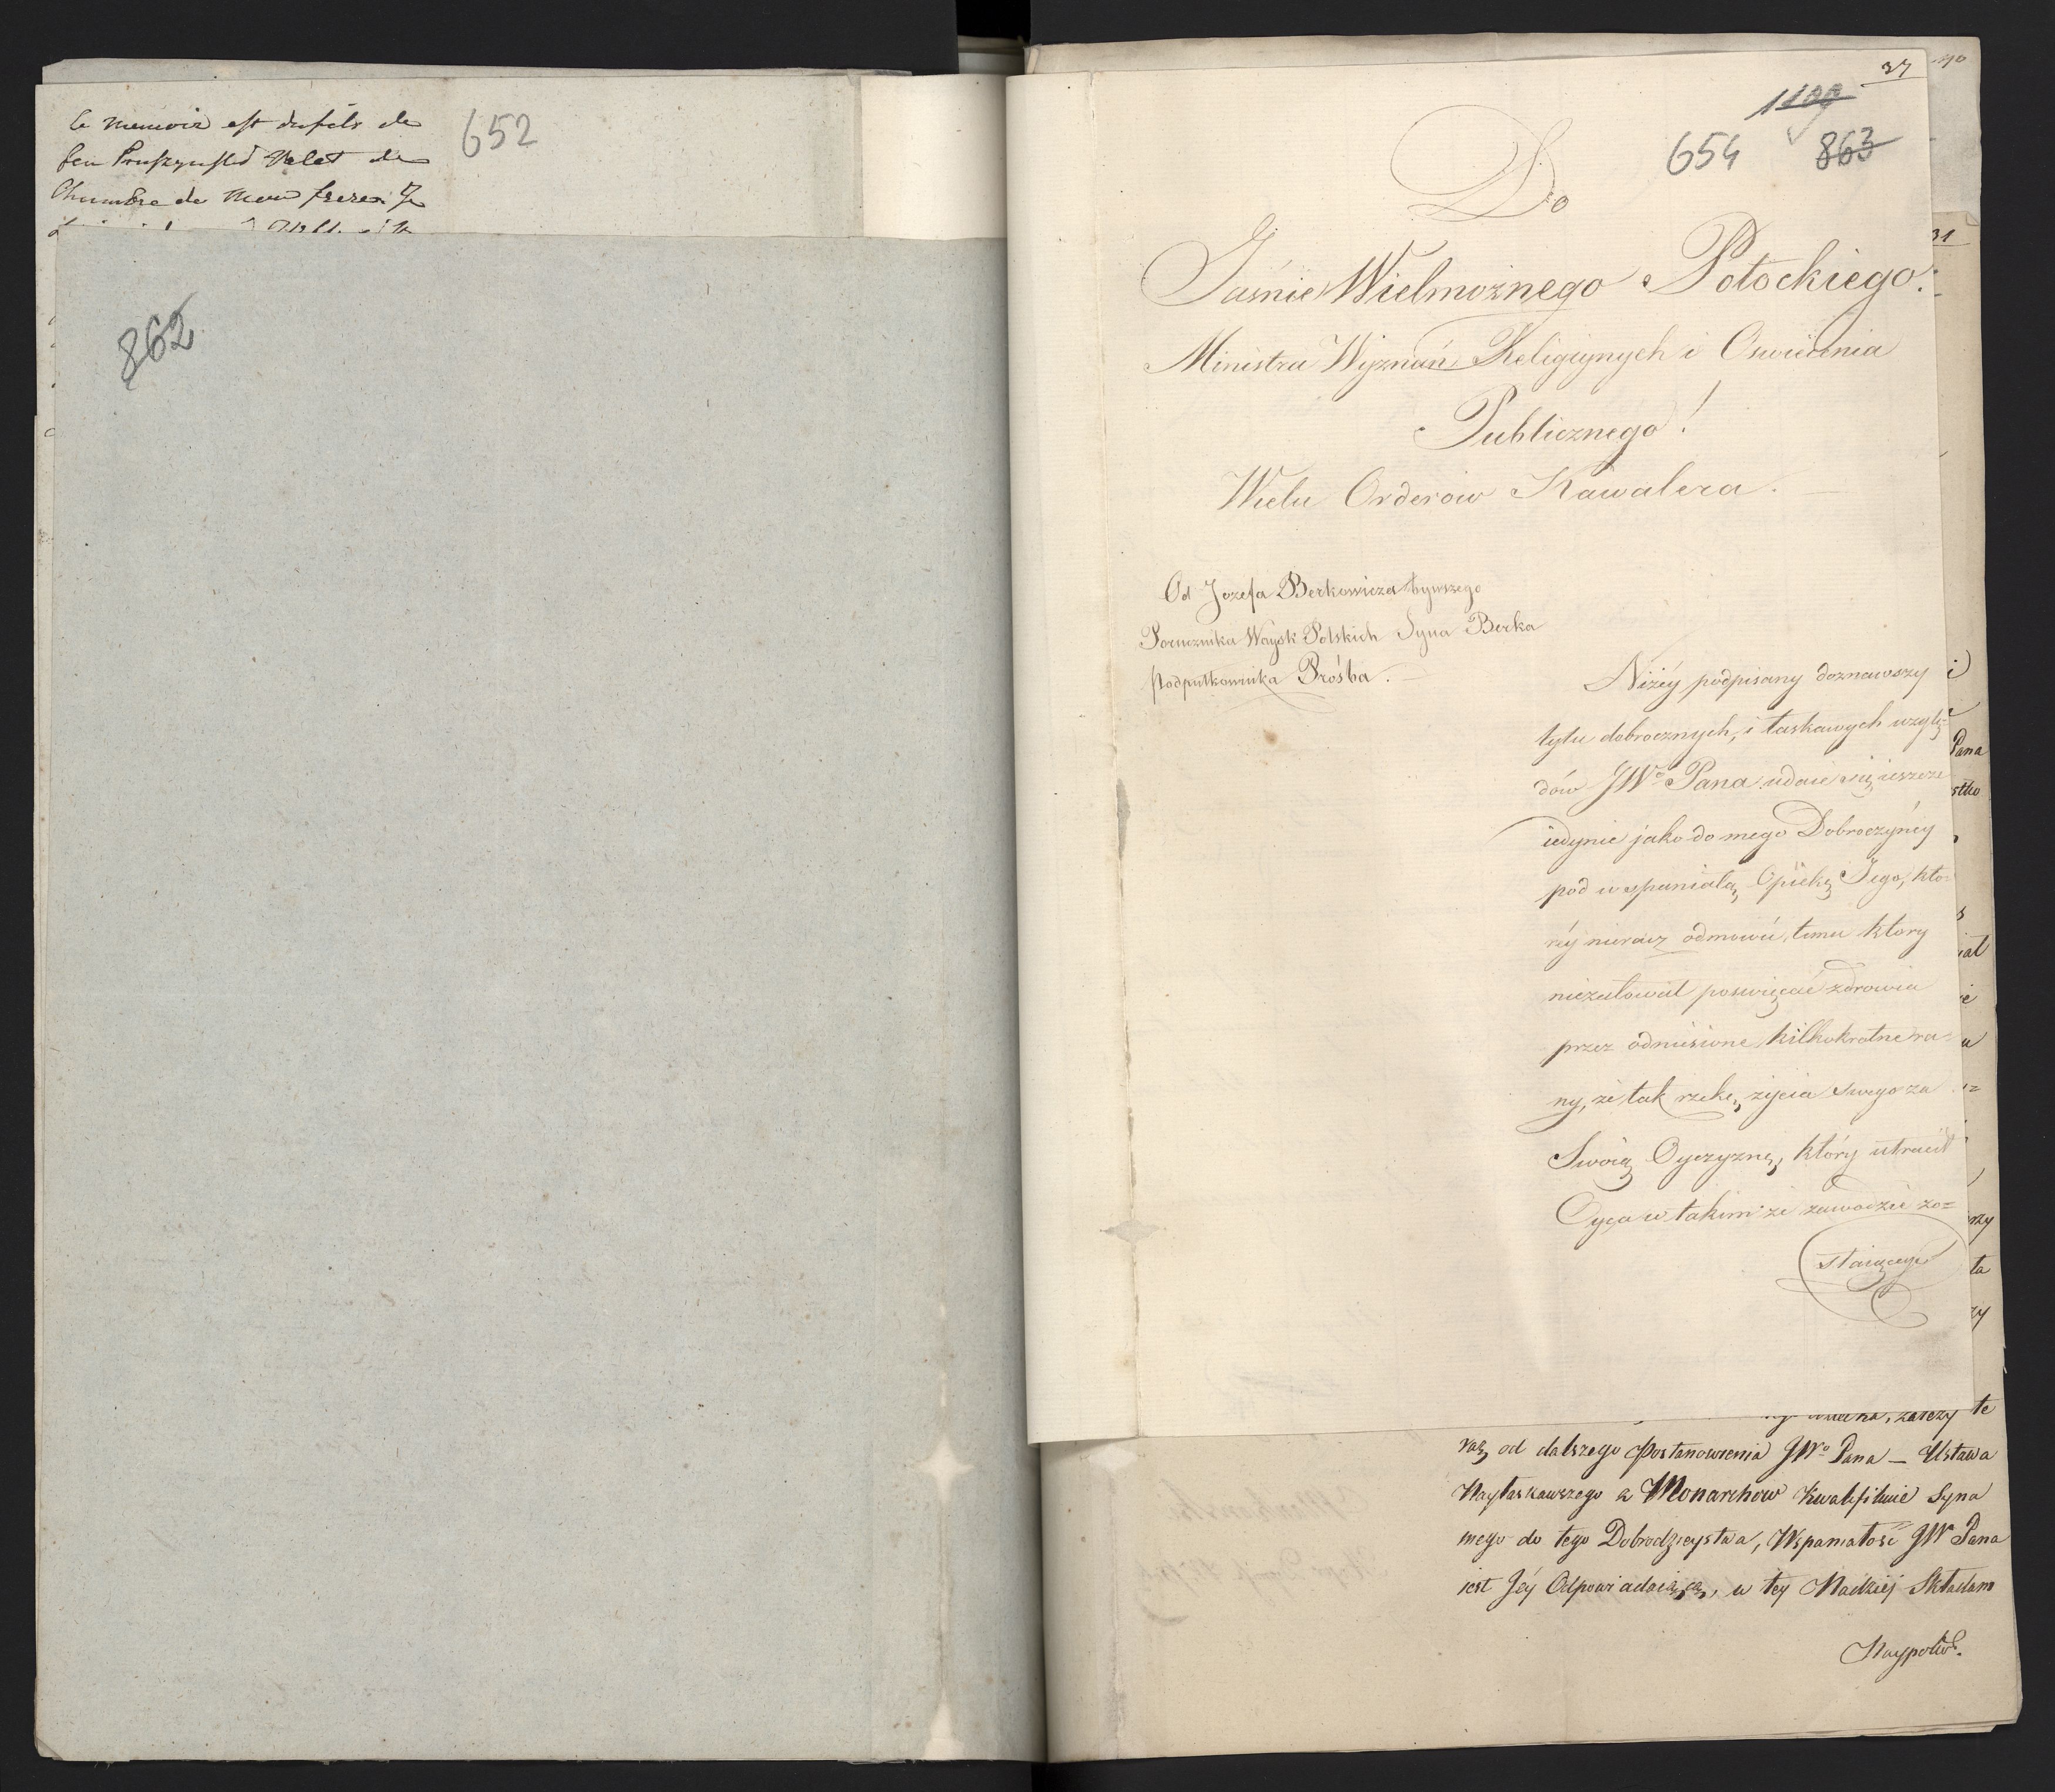 le memoire est du fils de
feu Pruszynski Valet de
Chambre de mon frere. Je
652
862
37
1100
654 863
Do
Jaśnie Wielmożnego Potockiego.
Ministra Wyznań Religiynych i Oswiécenia
Publicznego!
Wielu Orderow Kawalera.
Od Jozefa Berkowicza bywszego
Porucznika Woysk Polskich Syna Berka
Podpułkownika Prośba.
Niżéy podpisany doznawszy
tylu dobrocznych, i łaskawych wzglę=
dów JWo Pana udaie się ieszcze
iedynie jako do mego Dobroczyńcy
pod wspaniałą Opiekę Jego, któ=
réy nieracz odmowić, temu ktory
nieżałował poswięcać zdrowia
przez odniesione kilkokrotne ra=
ny, że tak rzekę, życia swego za
Swoią Oyczyznę, który utracił
Oyca w takimże zawodzie zo=
staiącego
31
Pana
stko
rzy
ta
zy
zależy te
raz od dalszego Postanowienia JWo Pana — Ustawa
Nayłaskawszego z Monarchow Kwalifikuie Syna
mego do tego Dobrodzieystwa, Wspaniałość JW Pana
iest Jéy Odpowiadaiącą, w tey Nadziej Składam
Naypoko.